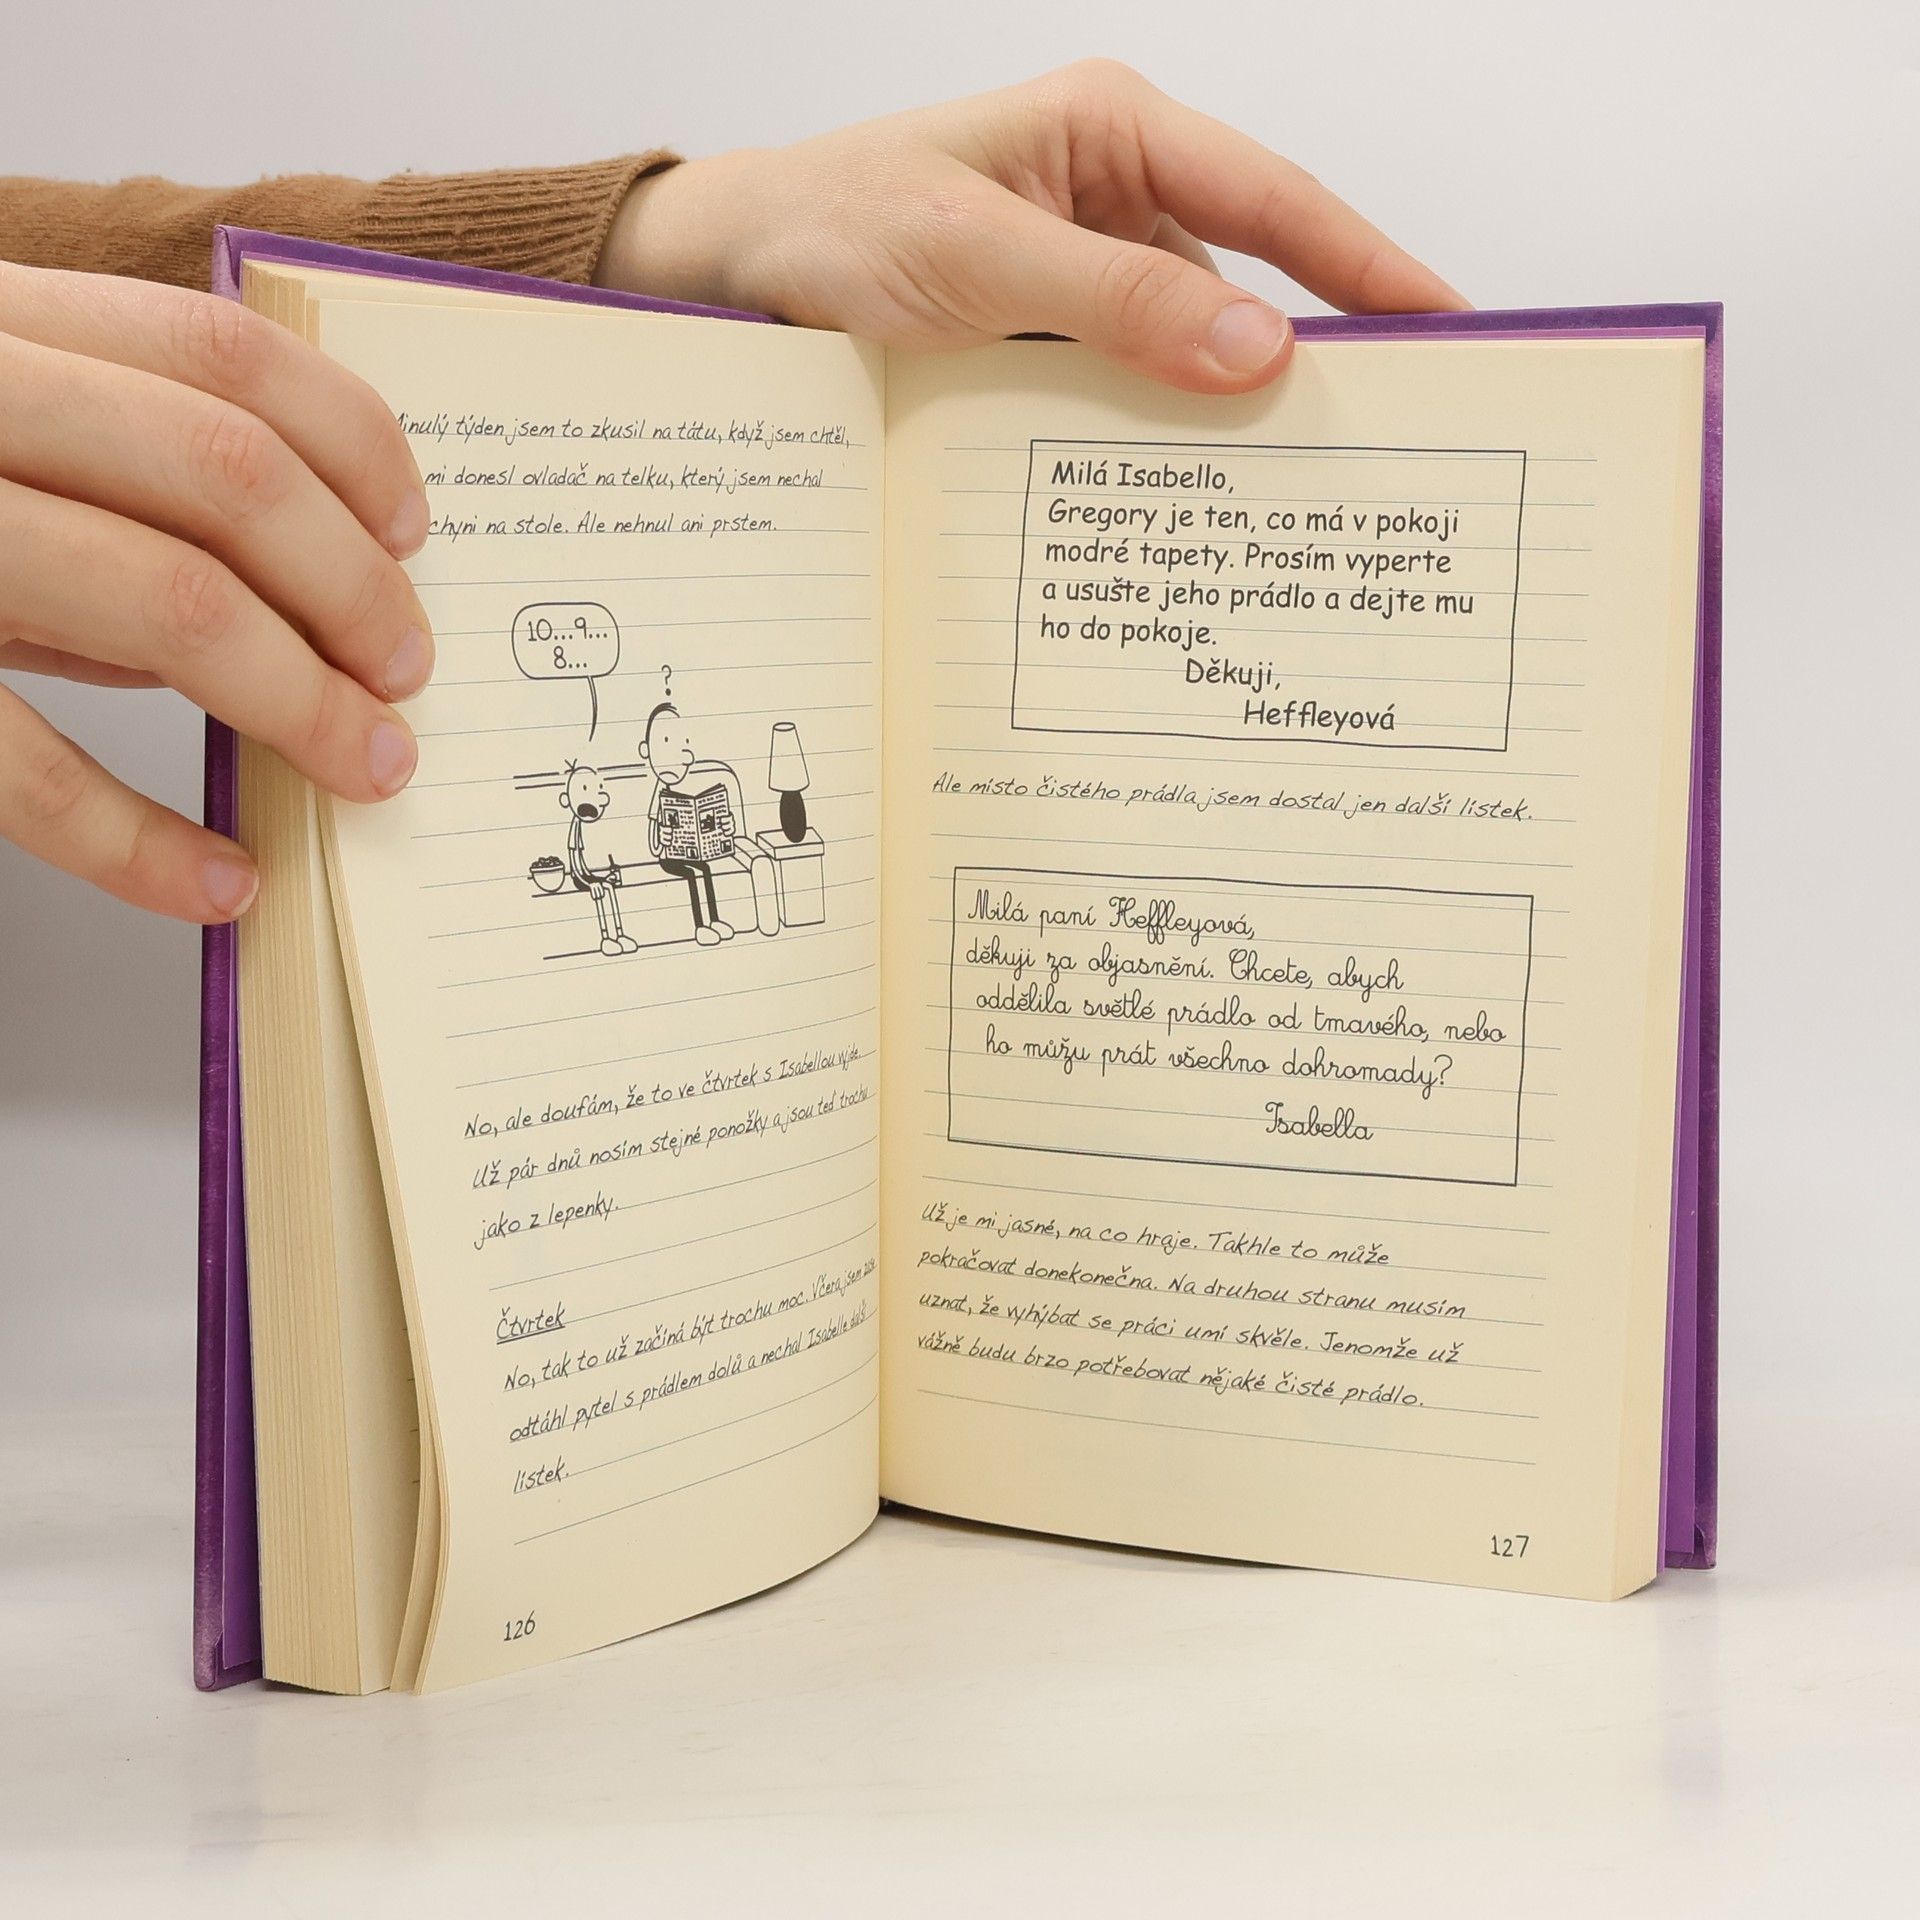 Minulý týden jsem to zkusil na tátu, když jsem chtěl,
mi donesl ovladač na telku, který jsem nechal
na stole. Ale nehnul ani prstem.
10...9...
8...
?
No, ale doufám, že to ve čtvrtek s Isabellou vyjde.
Už pár dnů nosím stejné ponožky a jsou teď trochu
jako z lepenky.
Čtvrtek
No, tak to už začíná být trochu moc. Včera jsem zase
odtáhl pytel s prádlem dolů a nechal Isabelle další
lístek.
126
Milá Isabello,
Gregory je ten, co má v pokoji
modré tapety. Prosím vyperte
a usušte jeho prádlo a dejte mu
ho do pokoje.
Děkuji,
Heffleyová
Ale místo čistého prádla jsem dostal jen další lístek.
Milá paní Heffleyová,
děkuji za objasnění. Chcete, abych
oddělila světlé prádlo od tmavého, nebo
ho můžu prát všechno dohromady?
Isabella
Už je mi jasné, na co hraje. Takhle to může
pokračovat donekonečna. Na druhou stranu musím
uznat, že vyhýbat se práci umí skvěle. Jenomže už
vážně budu brzo potřebovat nějaké čisté prádlo.
127